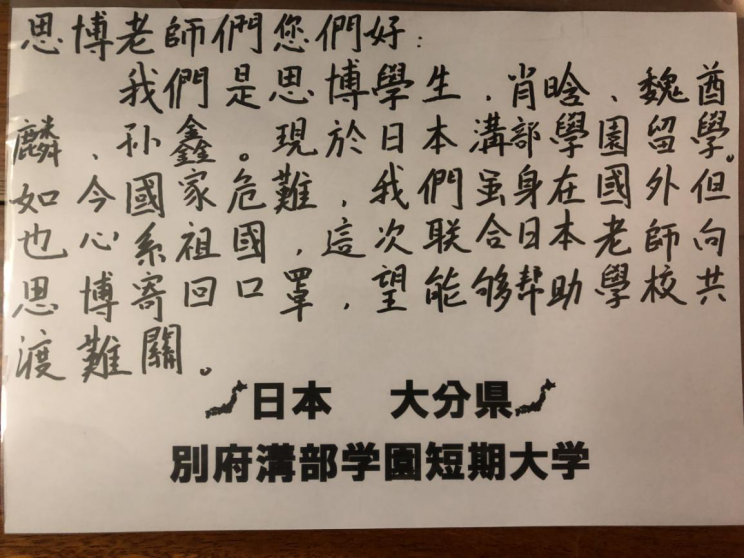 思博老師們您們好：
我們是思博學生、肖晗、魏酋
麟、孙鑫。現於日本溝部學園留學。
如今國家危難，我們虽身在國外但
也心系祖國，這次联合日本老師向
思博寄回口罩，望能够帮助學校共
渡難關。
日本 大分県
別府溝部学園短期大学